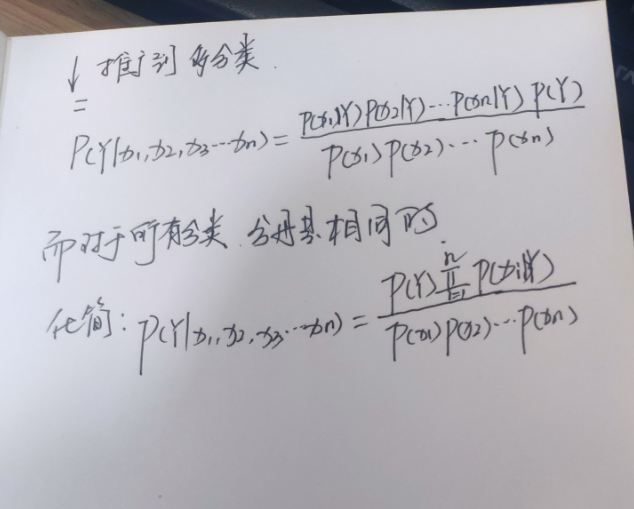 ↓ 推广到多分类.
=
P(Y|x₁,x₂,x₃⋯xn) = P(x₁|Y)P(x₂|Y)⋯P(xn|Y)P(Y) / P(x₁)P(x₂)⋯P(xn)
而对于所有分类,分母是相同的
化简: P(Y|x₁,x₂,x₃⋯xn) = P(Y)∏ⁿᵢ₌₁P(xi|Y) / P(x₁)P(x₂)⋯P(xn)